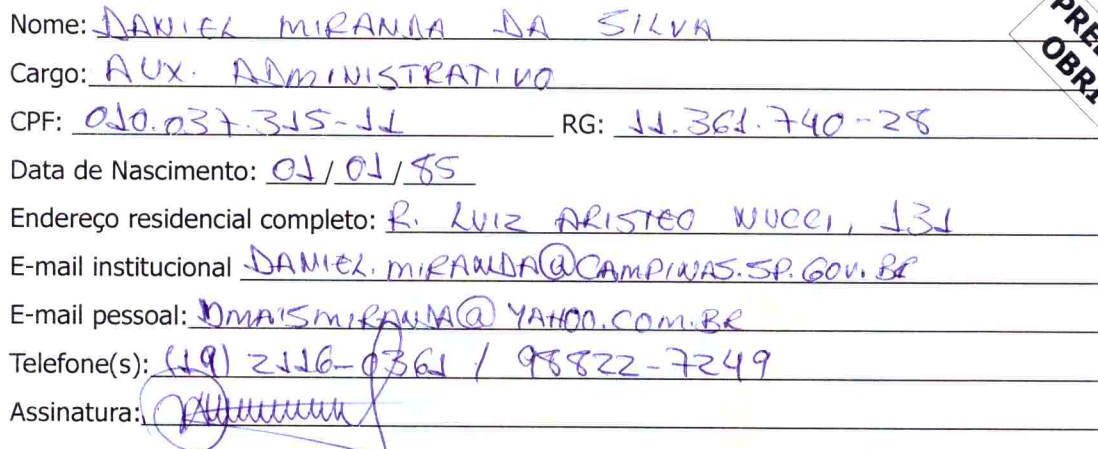 Nome: DANIEL MIRANDA DA SILVA
Cargo: AUX. ADMINISTRATIVO
CPF: 010.037.315-11 RG: 11.361.740-28
Data de Nascimento: 01/01/85
Endereço residencial completo: R. LUIZ ARISTEO NUCCI, 131
E-mail institucional DANIEL.MIRANDA@CAMPINAS.SP.GOV.BR
E-mail pessoal: DMAISMIRANDA@YAHOO.COM.BR
Telefone(s): (19) 2116-0361 / 98822-7249
Assinatura: